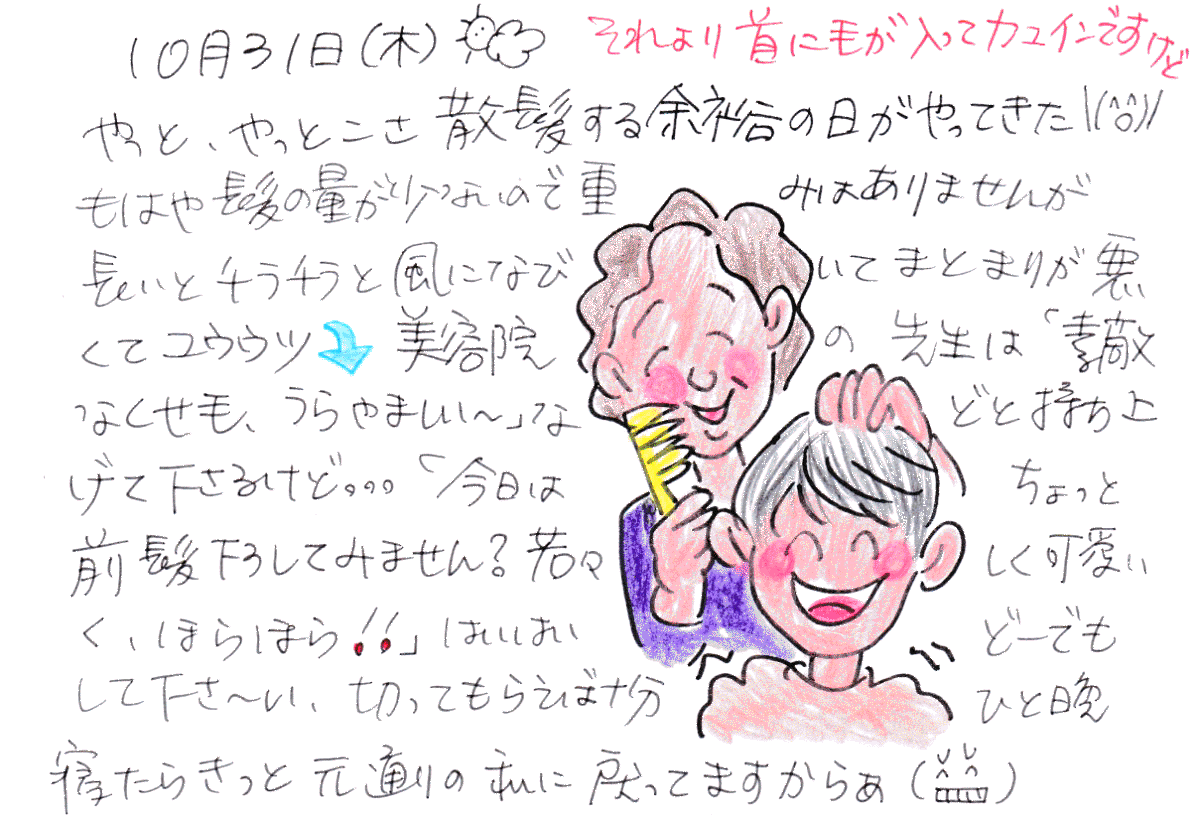 10月31日(木)
それより首に毛が入ってカユインですけど
やっと、やっとこさ散髪する余裕の日がやってきた\(^o^)/
もはや髪の量が少ないので重みはありませんが
長いとチラチラと風になびいてまとまりが悪
くてユウウツ 美容院の先生は「素敵
なくせ毛、うらやましい〜」など持ち上
げて下さるけど。。。「今日はちょっと
前髪下ろしてみません?若々しく可愛い
く、ほらほら!!」はいはいどーでも
して下さ〜い、切ってもらえば十分ひと晩
寝たらきっと元通りの私に戻ってますからぁ